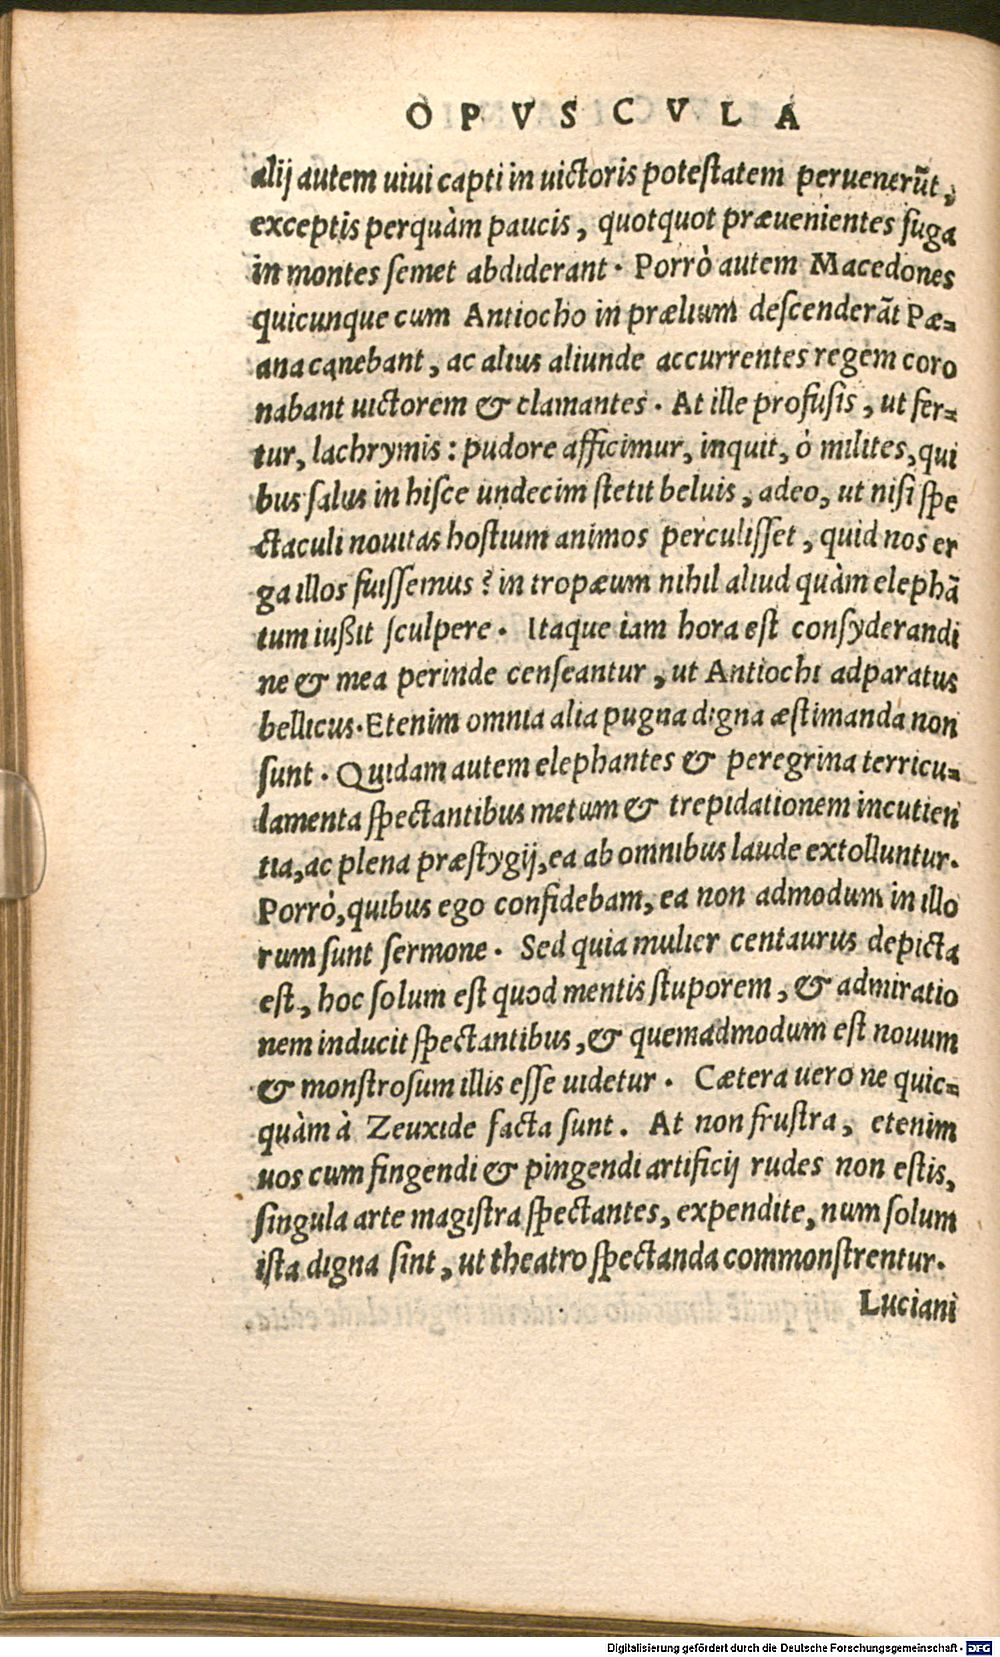 OPVSCVLA
alij autem uiui capti in uictoris potestatem peruenerũt,
exceptis perquàm paucis, quotquot præuenientes fuga
in montes semet abdiderant. Porrò autem Macedones
quicunque cum Antiocho in prælium descenderãt Pæ=
ana canebant, ac alius aliunde accurrentes regem coro
nabant uictorem & clamantes. At ille profusis, ut fer=
tur, lachrymis: pudore afficimur, inquit, ò milites, qui
bus salus in hisce undecim stetit beluis, adeo, ut nisi spe
ctaculi nouitas hostium animos perculisset, quid nos er
ga illos fuissemus? in tropæum nihil aliud quàm elephã
tum iußit sculpere. Itaque iam hora est consyderandi
ne & mea perinde censeantur, ut Antiochi adparatus
bellicus. Etenim omnia alia pugna digna æstimanda non
sunt. Quidam autem elephantes & peregrina terricu=
lamenta spectantibus metum & trepidationem incutien
tia, ac plena præstygij, ea ab omnibus laude extolluntur.
Porrò, quibus ego confidebam, ea non admodum in illo
rum sunt sermone. Sed quia mulier centaurus depicta
est, hoc solum est quod mentis stuporem, & admiratio
nem inducit spectantibus, & quemadmodum est nouum
& monstrosum illis esse uidetur. Cætera uero ne quic=
quàm à Zeuxide facta sunt. At non frustra, etenim
uos cum fingendi & pingendi artificij rudes non estis,
singula arte magistra spectantes, expendite, num solum
ista digna sint, ut theatro spectanda commonstrentur.
Luciani
Digitalisierung gefördert durch die Deutsche Forschungsgemeinschaft - DFG